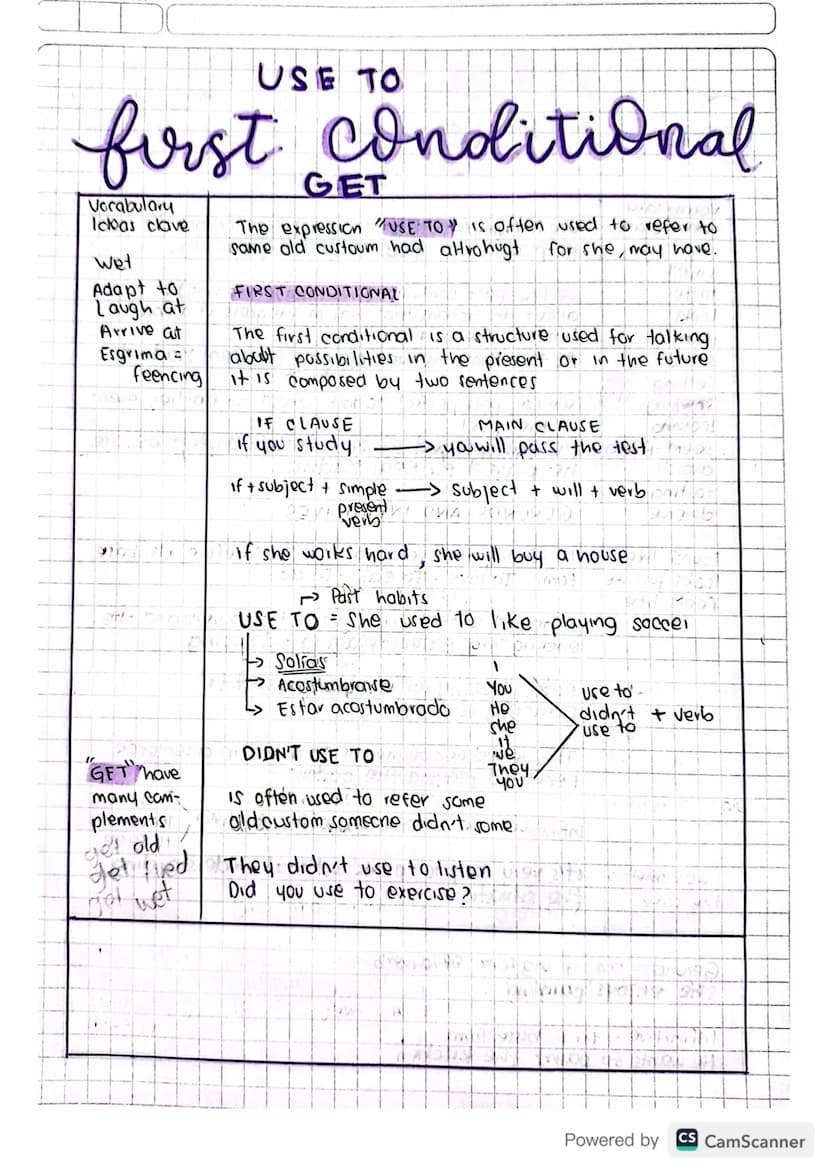 USE TO
first conditional
GET
Vocabulary
Ideas clave
Wet
Adapt to
Laugh at
Arrive at
Esgrima =
feencing
The expression "USE TO" is often used to refer to
same old custoum had for she, may have.
FIRST CONDITIONAL
The first conditional is a structure used for talking
about possibilities in the present or in the future
it is composed by two sentences
IF CLAUSE MAIN CLAUSE
if you study → you will pass the test
if + subject + simple → subject + will + verb
present
verb
if she works hard, she will buy a house
↱ Past habits
USE TO = She used to like playing soccer
→ Solías
→ Acostumbrarse
→ Estar acostumbrado
I
You
He
she
it
we
They
you
use to
didn't + verb
use to
DIDN'T USE TO
is often used to refer some
old custom someone didn't some
They didn't use to listen
Did you use to exercise?
"GET" have
many com-
plements
get old
get tired
get wet
Powered by CS CamScanner